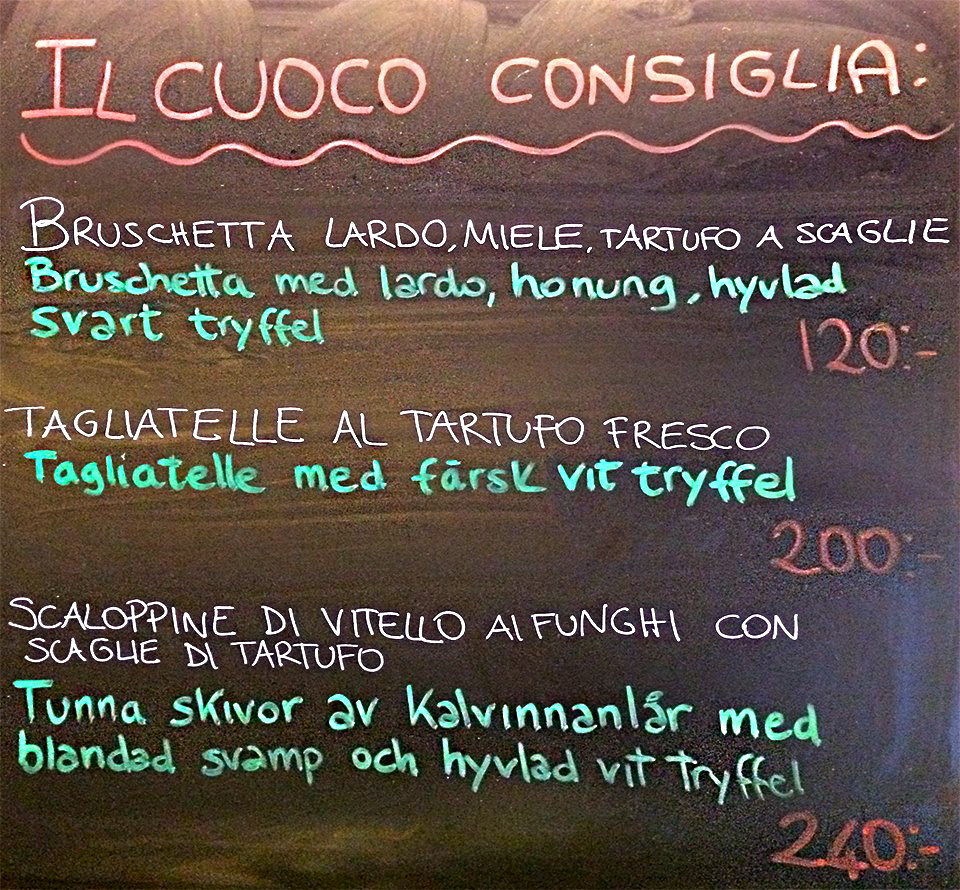 IL CUOCO CONSIGLIA:
BRUSCHETTA LARDO, MIELE, TARTUFO A SCAGLIE
Bruschetta med lardo, honung, hyvlad
svart tryffel
120:-
TAGLIATELLE AL TARTUFO FRESCO
Tagliatelle med färsk vit tryffel
200:-
SCALOPPINE DI VITELLO AI FUNGHI CON
SCAGLIE DI TARTUFO
Tunna skivor av Kalvinnanlår med
blandad svamp och hyvlad vit tryffel
240:-